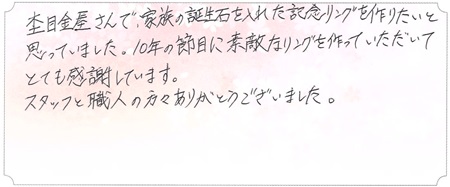 杢目金屋さんで、家族の誕生石を入れた記念リングを作りたいと
思っていました。10年の節目に素敵なリングを作っていただいて
とても感謝しています。
スタッフと職人の方々ありがとうございました。